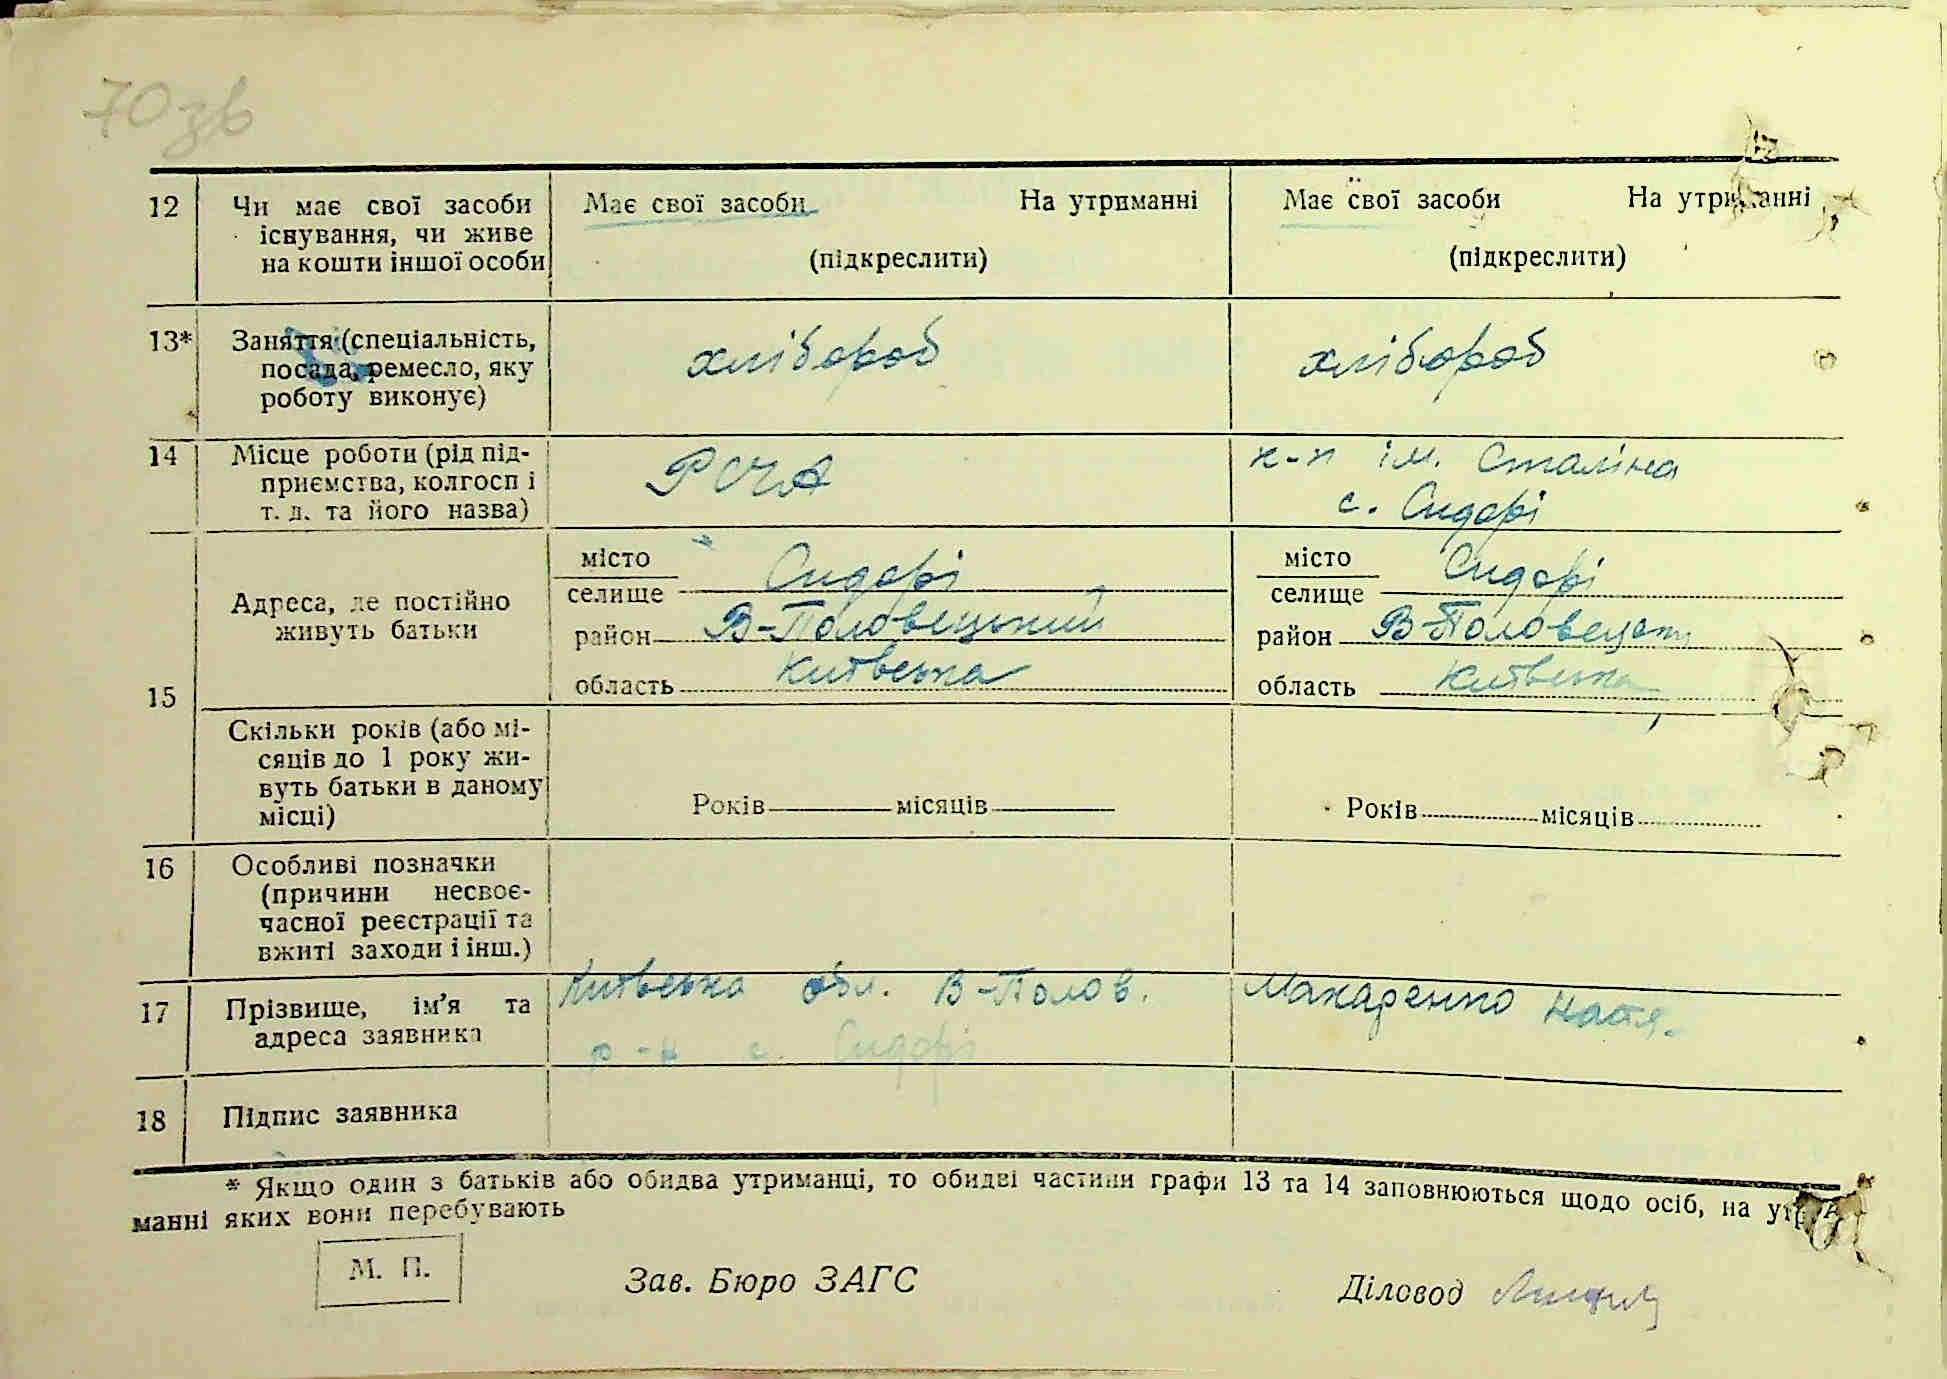 70зв
12 Чи має свої засоби існування, чи живе на кошти іншої особи
Має свої засоби На утриманні
(підкреслити)
Має свої засоби На утриманні
(підкреслити)
13* Заняття (спеціальність, посада, ремесло, яку роботу виконує)
хлібороб
хлібороб
14 Місце роботи (рід підприємства, колгосп і т. д. та його назва)
РСЧА
к-п ім. Сталіна
с. Сидорі
15
Адреса, де постійно живуть батьки
місто
селище Сидорі
район В-Половецький
область Київська
місто
селище Сидорі
район В-Половецьки
область Київська
Скільки років (або місяців до 1 року живуть батьки в даному місці)
Років місяців
Років місяців
16 Особливі позначки (причини несвоєчасної реєстрації та вжиті заходи і інш.)
17 Прізвище, ім'я та адреса заявника
Київська обл. В-Полов.
р-н с. Сидорі
Макаренко Натя.
18 Підпис заявника
* Якщо один з батьків або обидва утриманці, то обидві частини графи 13 та 14 заповнюються щодо осіб, на утри
манні яких вони перебувають
М. П.
Зав. Бюро ЗАГС
Діловод